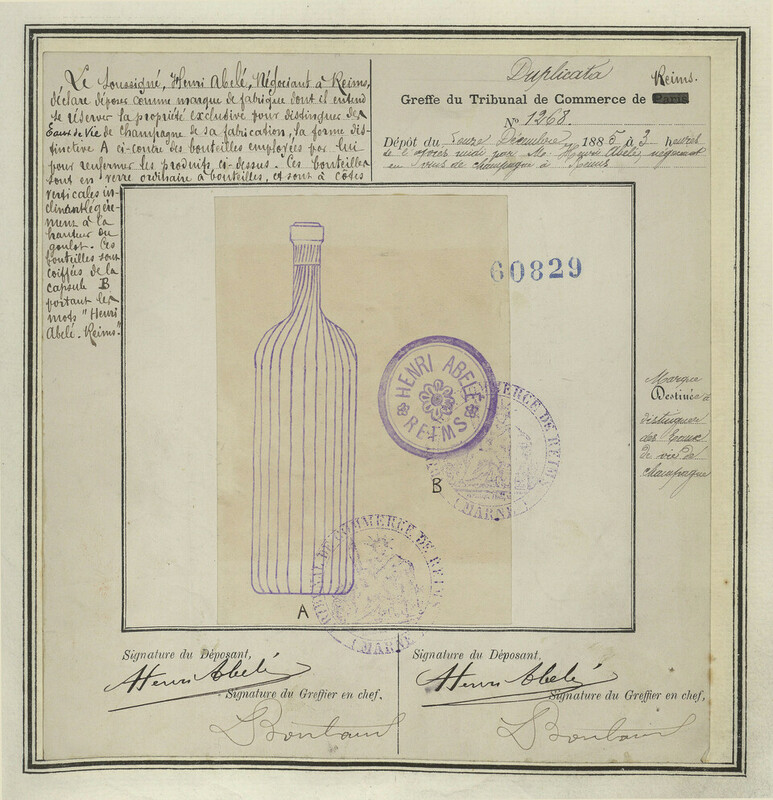 Le Soussigné, Henri Abelé, Négociant à Reims,
déclare déposer comme marque de fabrique dont il entend
se réserver la propriété exclusive pour distinguer des
Eaux de Vie de champagne de sa fabrication, la forme dis-
tinctive A ci-contre des bouteilles employées par lui
pour renfermer les produits ci-dessus. Ces bouteilles
sont en verre ordinaire à bouteilles, et sont à côtes
verticales in-
clinant légère-
ment à la
hauteur du
goulot. Ces
bouteilles sont
coiffées de la
capsule B
portant les
mots "Henri
Abelé. Reims".
Duplicata
Reims.
Greffe du Tribunal de Commerce de Paris
No 1268.
Dépôt du Douze Décembre 1885 à 3 heures
de l'après midi par Mr Henri Abelé, négociant
en vins de champagne à Reims
60829
HENRI ABELÉ
REIMS
B
COMMERCE DE REIMS
(MARNE)
A
TRIBUNAL DE COMMERCE DE REIMS
(MARNE)
Marque
Destinée à
distinguer
des Eaux
de vie de
champagne
Signature du Déposant,
Henri Abelé
Signature du Greffier en chef,
Signature du Déposant,
Henri Abelé
Signature du Greffier en chef,